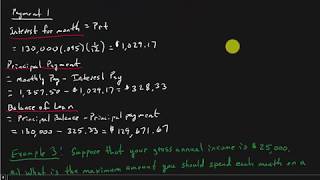 Payment 1
Interest for month = Prt
= 130,000(.095)(1/12) = $1,029.17
Principal Payment
= Monthly Pay - Interest Pay
= 1,357.50 - 1,029.17 = $328.33
Balance of Loan
= Principal Balance - Principal payment
= 130,000 - 328.33 = $129,671.67
Example 3: Suppose that your gross annual income is $25,000.
a) What is the maximum amount you should spend each month on a